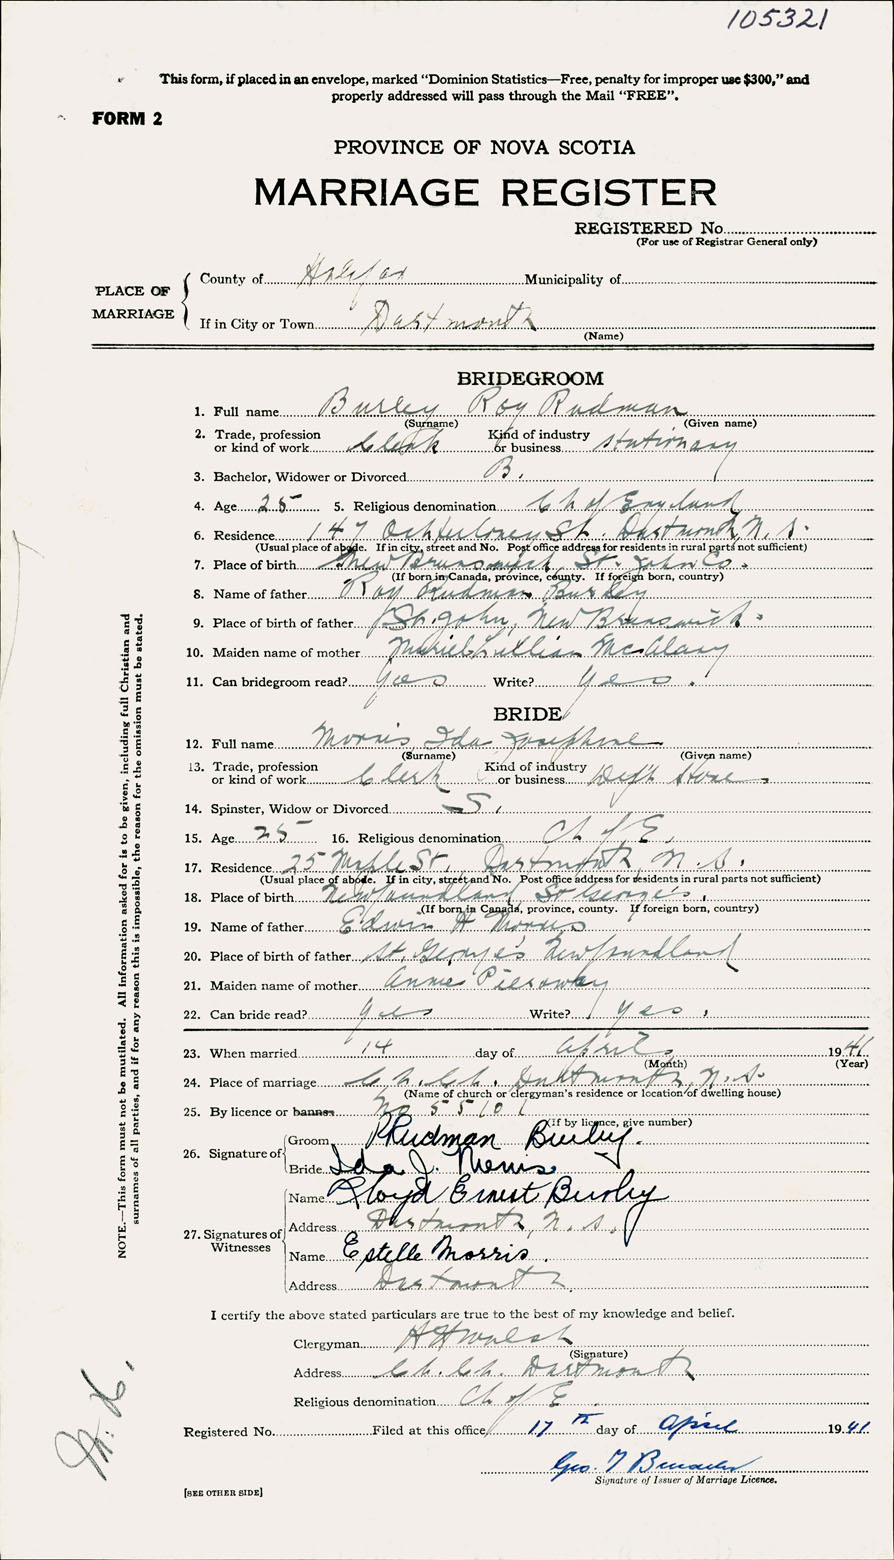 105321
This form, if placed in an envelope, marked "Dominion Statistics—Free, penalty for improper use $300," and
properly addressed will pass through the Mail "FREE".
FORM 2
PROVINCE OF NOVA SCOTIA
MARRIAGE REGISTER
REGISTERED No.
(For use of Registrar General only)
PLACE OF MARRIAGE
County of Halifax Municipality of
If in City or Town Dartmouth
(Name)
BRIDEGROOM
1. Full name Burley Roy Rudman
(Surname) (Given name)
2. Trade, profession or kind of work Clerk Kind of industry or business Stationary
3. Bachelor, Widower or Divorced B.
4. Age 25 5. Religious denomination Ch of England
6. Residence 147 Ochterloney St. Dartmouth, N. S.
(Usual place of abode. If in city, street and No. Post office address for residents in rural parts not sufficient)
7. Place of birth New Brunswick, St. John Co.
(If born in Canada, province, county. If foreign born, country)
8. Name of father Roy Rudman Burley
9. Place of birth of father St. John, New Brunswick.
10. Maiden name of mother Muriel Lillian McAlary
11. Can bridegroom read? Yes Write? Yes.
BRIDE
12. Full name Morris Ida Josephine
(Surname) (Given name)
13. Trade, profession or kind of work Clerk Kind of industry or business Dep't Store
14. Spinster, Widow or Divorced S.
15. Age 25 16. Religious denomination Ch of E.
17. Residence 25 Maple St. Dartmouth N. S.
(Usual place of abode. If in city, street and No. Post office address for residents in rural parts not sufficient)
18. Place of birth Newfoundland St George's.
(If born in Canada, province, county. If foreign born, country)
19. Name of father Edwin H Morris
20. Place of birth of father St. George's Newfoundland
21. Maiden name of mother Annie Pieroway
22. Can bride read? Yes Write? Yes.
23. When married 14 day of April 1941
(Month) (Year)
24. Place of marriage Ch. Ch. Dartmouth, N. S.
(Name of church or clergyman's residence or location of dwelling house)
25. By licence or banns No 55101
(If by licence, give number)
26. Signature of
Groom RRudman Burley.
Bride Ida J. Morris
27. Signatures of Witnesses
Name Lloyd Ernest Burley
Address Dartmouth, N. S.
Name Estelle Morris.
Address Dartmouth
I certify the above stated particulars are true to the best of my knowledge and belief.
Clergyman A H Walsh
(Signature)
Address Ch. Ch. Dartmouth
Religious denomination Ch of E
Registered No. Filed at this office 17th day of April 1941
Geo. T
Signature of Issuer of Marriage Licence.
[SEE OTHER SIDE]
NOTE.—This form must not be mutilated. All information asked for is to be given, including full Christian and
surnames of all parties, and if for any reason this is impossible, the reason for the omission must be stated.